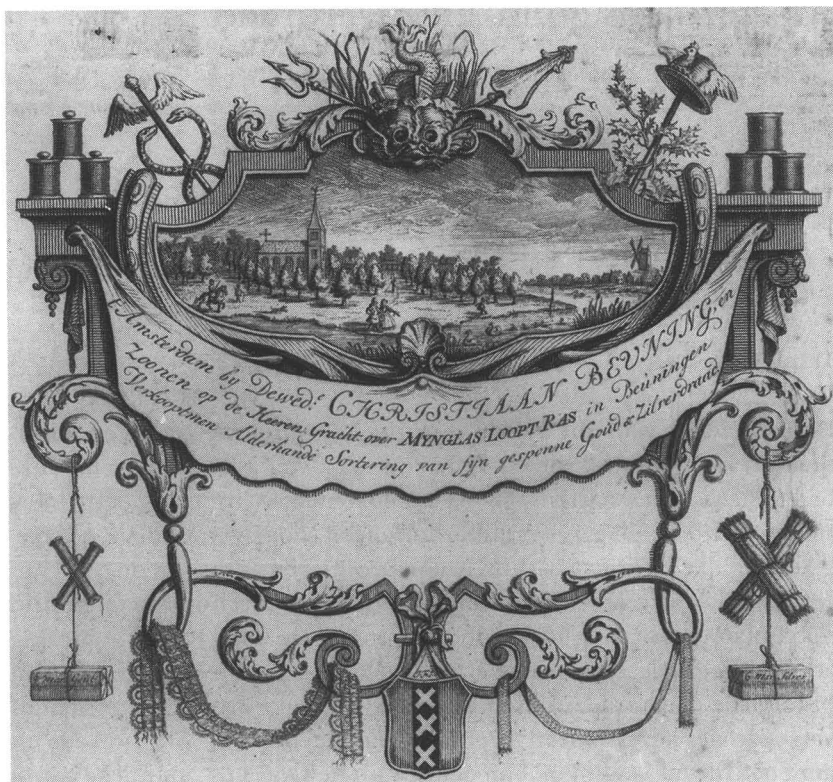 t'Amsterdam by Dewed:ͤ CHRISTIAAN BEUNING, en
Zoonen op de Heeren Gracht over MYNGLAS LOOPT RAS in Beuningen
Verkooptmen Alderhande Sortering van fyn gesponne Goud & Zilverdraad